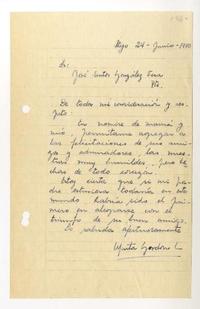 Stgo 24 - Junio -
Sr.
José Santos González Vera
Pte.
De toda mi consideración y res-
peto.
En nombre de mamá y
mío, permítame agregar a
las felicitaciones de sus ami-
gos y admiradores, las nues-
tras muy humildes, pero he-
chas de todo corazón.
Estoy cierta que si mi pa-
dre estuviera todavía en este
mundo, habría sido el pri-
mero en alegrarse con el
triunfo de su buen amigo.
Lo saluda afectuosamente